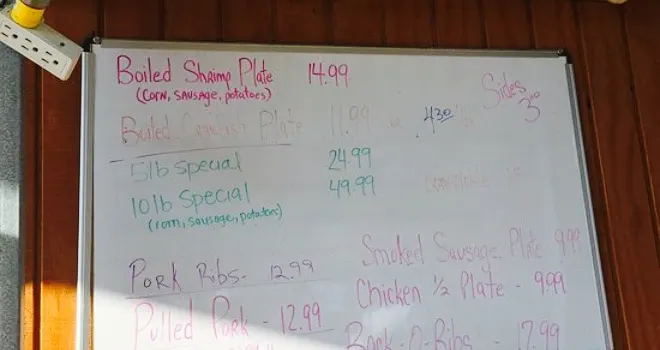 Boiled Shrimp Plate 14.99
(corn, sausage, potatoes)
Sides
3.00
Boiled Crawfish Plate 11.99
4.30
5lb special 24.99
10lb Special 49.99
(corn, sausage, potatoes)
Smoked Sausage Plate 9.99
Pork Ribs - 12.99
Chicken 1/2 Plate - 9.99
Pulled Pork - 12.99